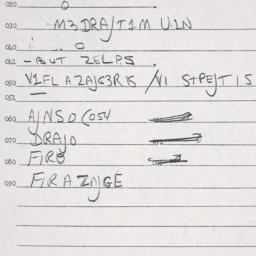 020
030 M3DRAJT1M U1N
040
041 -BUT ZELPS.
050 V1FL AZAJG3R15 /V1 STPEJT15
051
060 AJNSO(054
070 DRAJO
080 FIRB
090 FIRAZNJGE